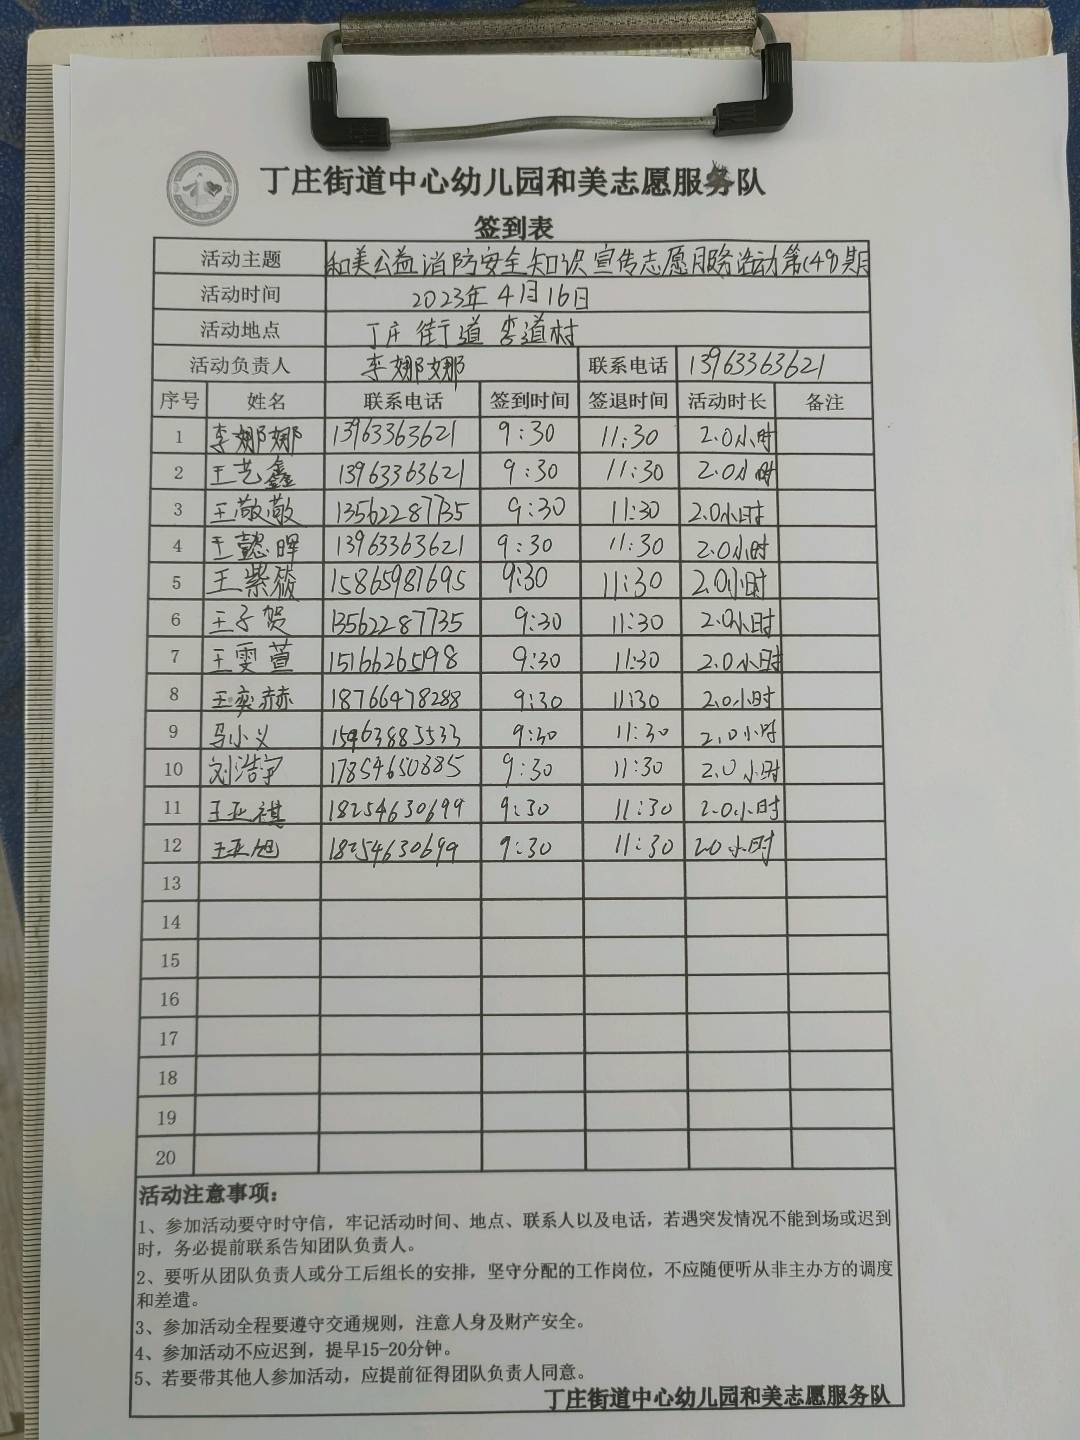 丁庄街道中心幼儿园和美志愿服务队
签到表
活动主题 和美公益消防安全知识宣传志愿服务活动第(49)期
活动时间 2023年4月16日
活动地点 丁庄街道李道村
活动负责人 李娜娜 联系电话 13963363621
序号 姓名 联系电话 签到时间 签退时间 活动时长 备注
1 李娜娜 13963363621 9:30 11:30 2.0小时
2 王艺鑫 13963363621 9:30 11:30 2.0小时
3 王敬敬 13562287735 9:30 11:30 2.0小时
4 王懿晖 13963363621 9:30 11:30 2.0小时
5 王紫薇 15865987695 9:30 11:30 2.0小时
6 王子贺 13562287735 9:30 11:30 2.0小时
7 王雯萱 15166265198 9:30 11:30 2.0小时
8 王奕赫 18766478288 9:30 11:30 2.0小时
9 马小义 15463885533 9:30 11:30 2.0小时
10 刘浩宇 17854650885 9:30 11:30 2.0小时
11 王亚祺 18254630699 9:30 11:30 2.0小时
12 王亚旭 18254630699 9:30 11:30 2.0小时
13
14
15
16
17
18
19
20
活动注意事项：
1、参加活动要守时守信，牢记活动时间、地点、联系人以及电话，若遇突发情况不能到场或迟到
时，务必提前联系告知团队负责人。
2、要听从团队负责人或分工后组长的安排，坚守分配的工作岗位，不应随便听从非主办方的调度
和差遣。
3、参加活动全程要遵守交通规则，注意人身及财产安全。
4、参加活动不应迟到，提早15-20分钟。
5、若要带其他人参加活动，应提前征得团队负责人同意。
丁庄街道中心幼儿园和美志愿服务队